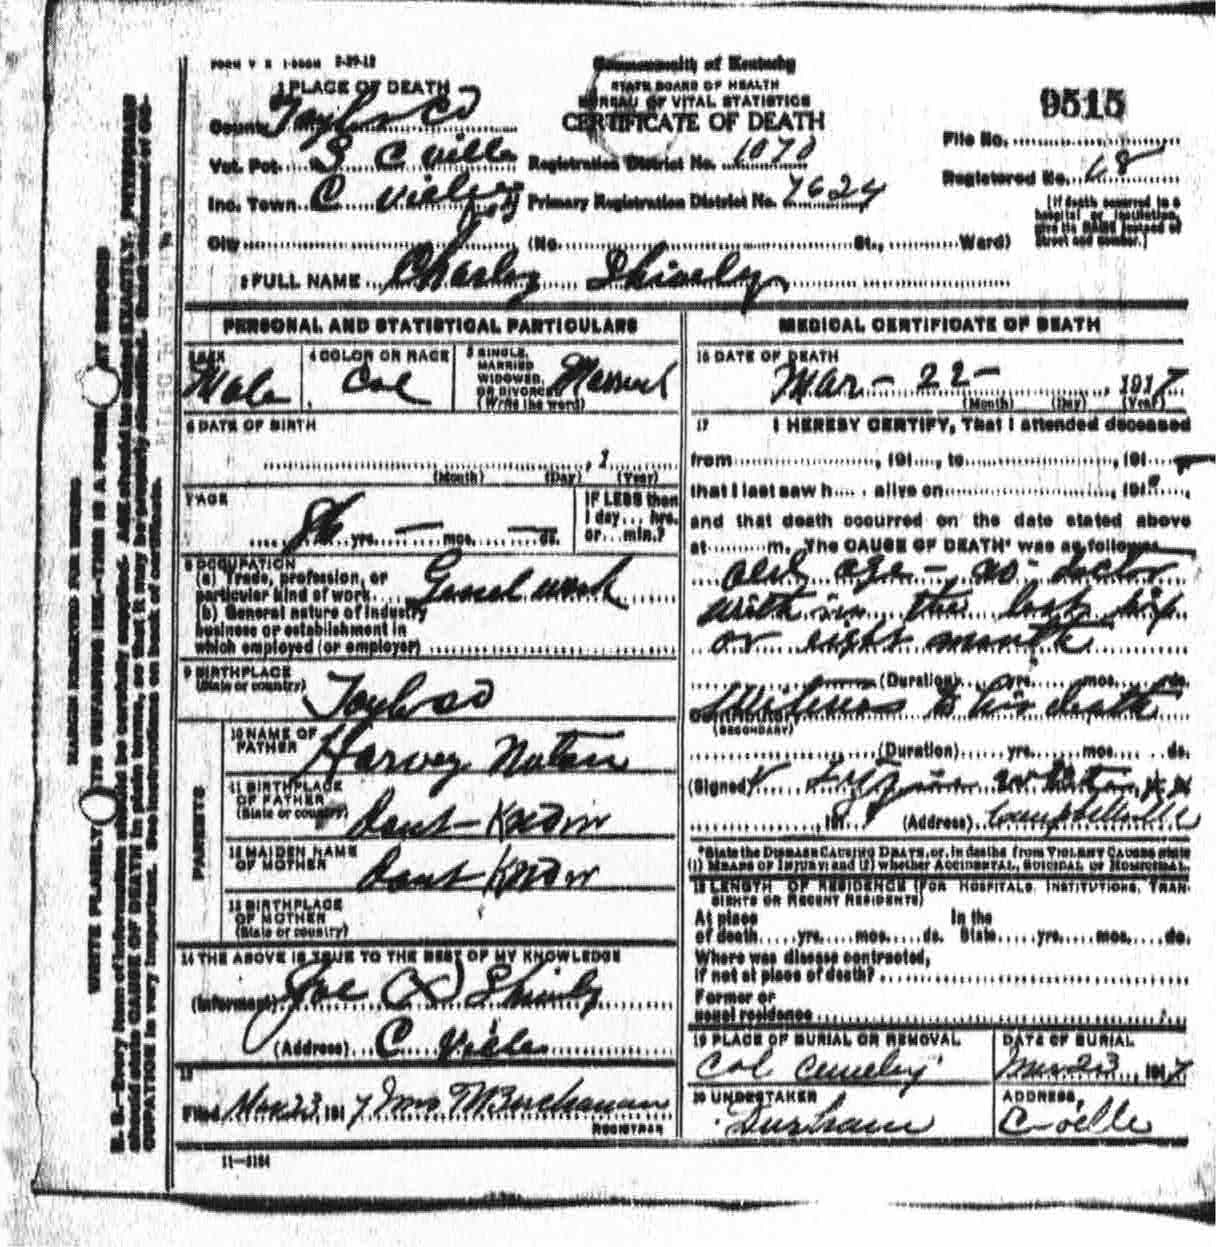 FORM V S 1-500M 3-29-12
Commonwealth of Kentucky
STATE BOARD OF HEALTH
BUREAU OF VITAL STATISTICS
CERTIFICATE OF DEATH
1 PLACE OF DEATH
County Taylor Co
Vot. Pct. S C ville
Inc. Town C ville Ky
Registration District No. 1070
Primary Registration District No. 7624
9515
File No.
Registered No. 68
[If death occurred in a hospital or institution, give its NAME instead of street and number.]
City (No. St., Ward)
2 FULL NAME Charley Shively
PERSONAL AND STATISTICAL PARTICULARS
3 SEX
Male
4 COLOR OR RACE
Col
5 SINGLE, MARRIED WIDOWED, OR DIVORCED (Write the word)
Married
6 DATE OF BIRTH
, 1
(Month) (Day) (Year)
7 AGE
yrs. — mos. — ds.
IF LESS than 1 day... hrs. or... min.?
8 OCCUPATION
(a) Trade, profession, or particular kind of work Genel work
(b) General nature of industry business or establishment in which employed (or employer)
9 BIRTHPLACE
(State or country)
Taylor co
PARENTS
10 NAME OF FATHER
Harvey
11 BIRTHPLACE OF FATHER (State or country)
Dont Know
12 MAIDEN NAME OF MOTHER
Dont Know
13 BIRTHPLACE OF MOTHER (State or country)
14 THE ABOVE IS TRUE TO THE BEST OF MY KNOWLEDGE
(Informant) Joe X Shively
(Address) C Ville
15
Filed Mar 23 1917 Jno M Buchanan
REGISTRAR
MEDICAL CERTIFICATE OF DEATH
16 DATE OF DEATH
Mar - 22 - , 1917
(Month) (Day) (Year)
17 I HEREBY CERTIFY, That I attended deceased
from , 191 , to , 191
that I last saw h alive on , 191 ,
and that death occurred on the date stated above
at m. The CAUSE OF DEATH* was as follows:
old age - no doctor
with in the last
or eight month
(Duration) yrs. mos. ds.
Contributory to his death
(SECONDARY)
(Duration) yrs. mos. ds.
(Signed)
, 191 (Address) Campbellsville
*State the DISEASE CAUSING DEATH, or, in deaths from VIOLENT CAUSES state (1) MEANS OF INJURY; and (2) whether ACCIDENTAL, SUICIDAL or HOMICIDAL.
18 LENGTH OF RESIDENCE (FOR HOSPITALS, INSTITUTIONS, TRANSIENTS OR RECENT RESIDENTS)
At place of death yrs. mos. ds. In the State yrs. mos. ds.
Where was disease contracted, if not at place of death?
Former or usual residence
19 PLACE OF BURIAL OR REMOVAL
Col Cemetery
DATE OF BURIAL
Mar 23, 1917
20 UNDERTAKER
Durham
ADDRESS
C-ville
11—3184
MARGIN RESERVED FOR BINDING
WRITE PLAINLY WITH UNFADING INK—THIS IS A PERMANENT RECORD
N. B.—Every item of information should be carefully supplied. AGE should be stated EXACTLY. PHYSICIANS should state CAUSE OF DEATH in plain terms, so that it may be properly classified. Exact statement of OCCUPATION is very important. See instructions on back of certificate.